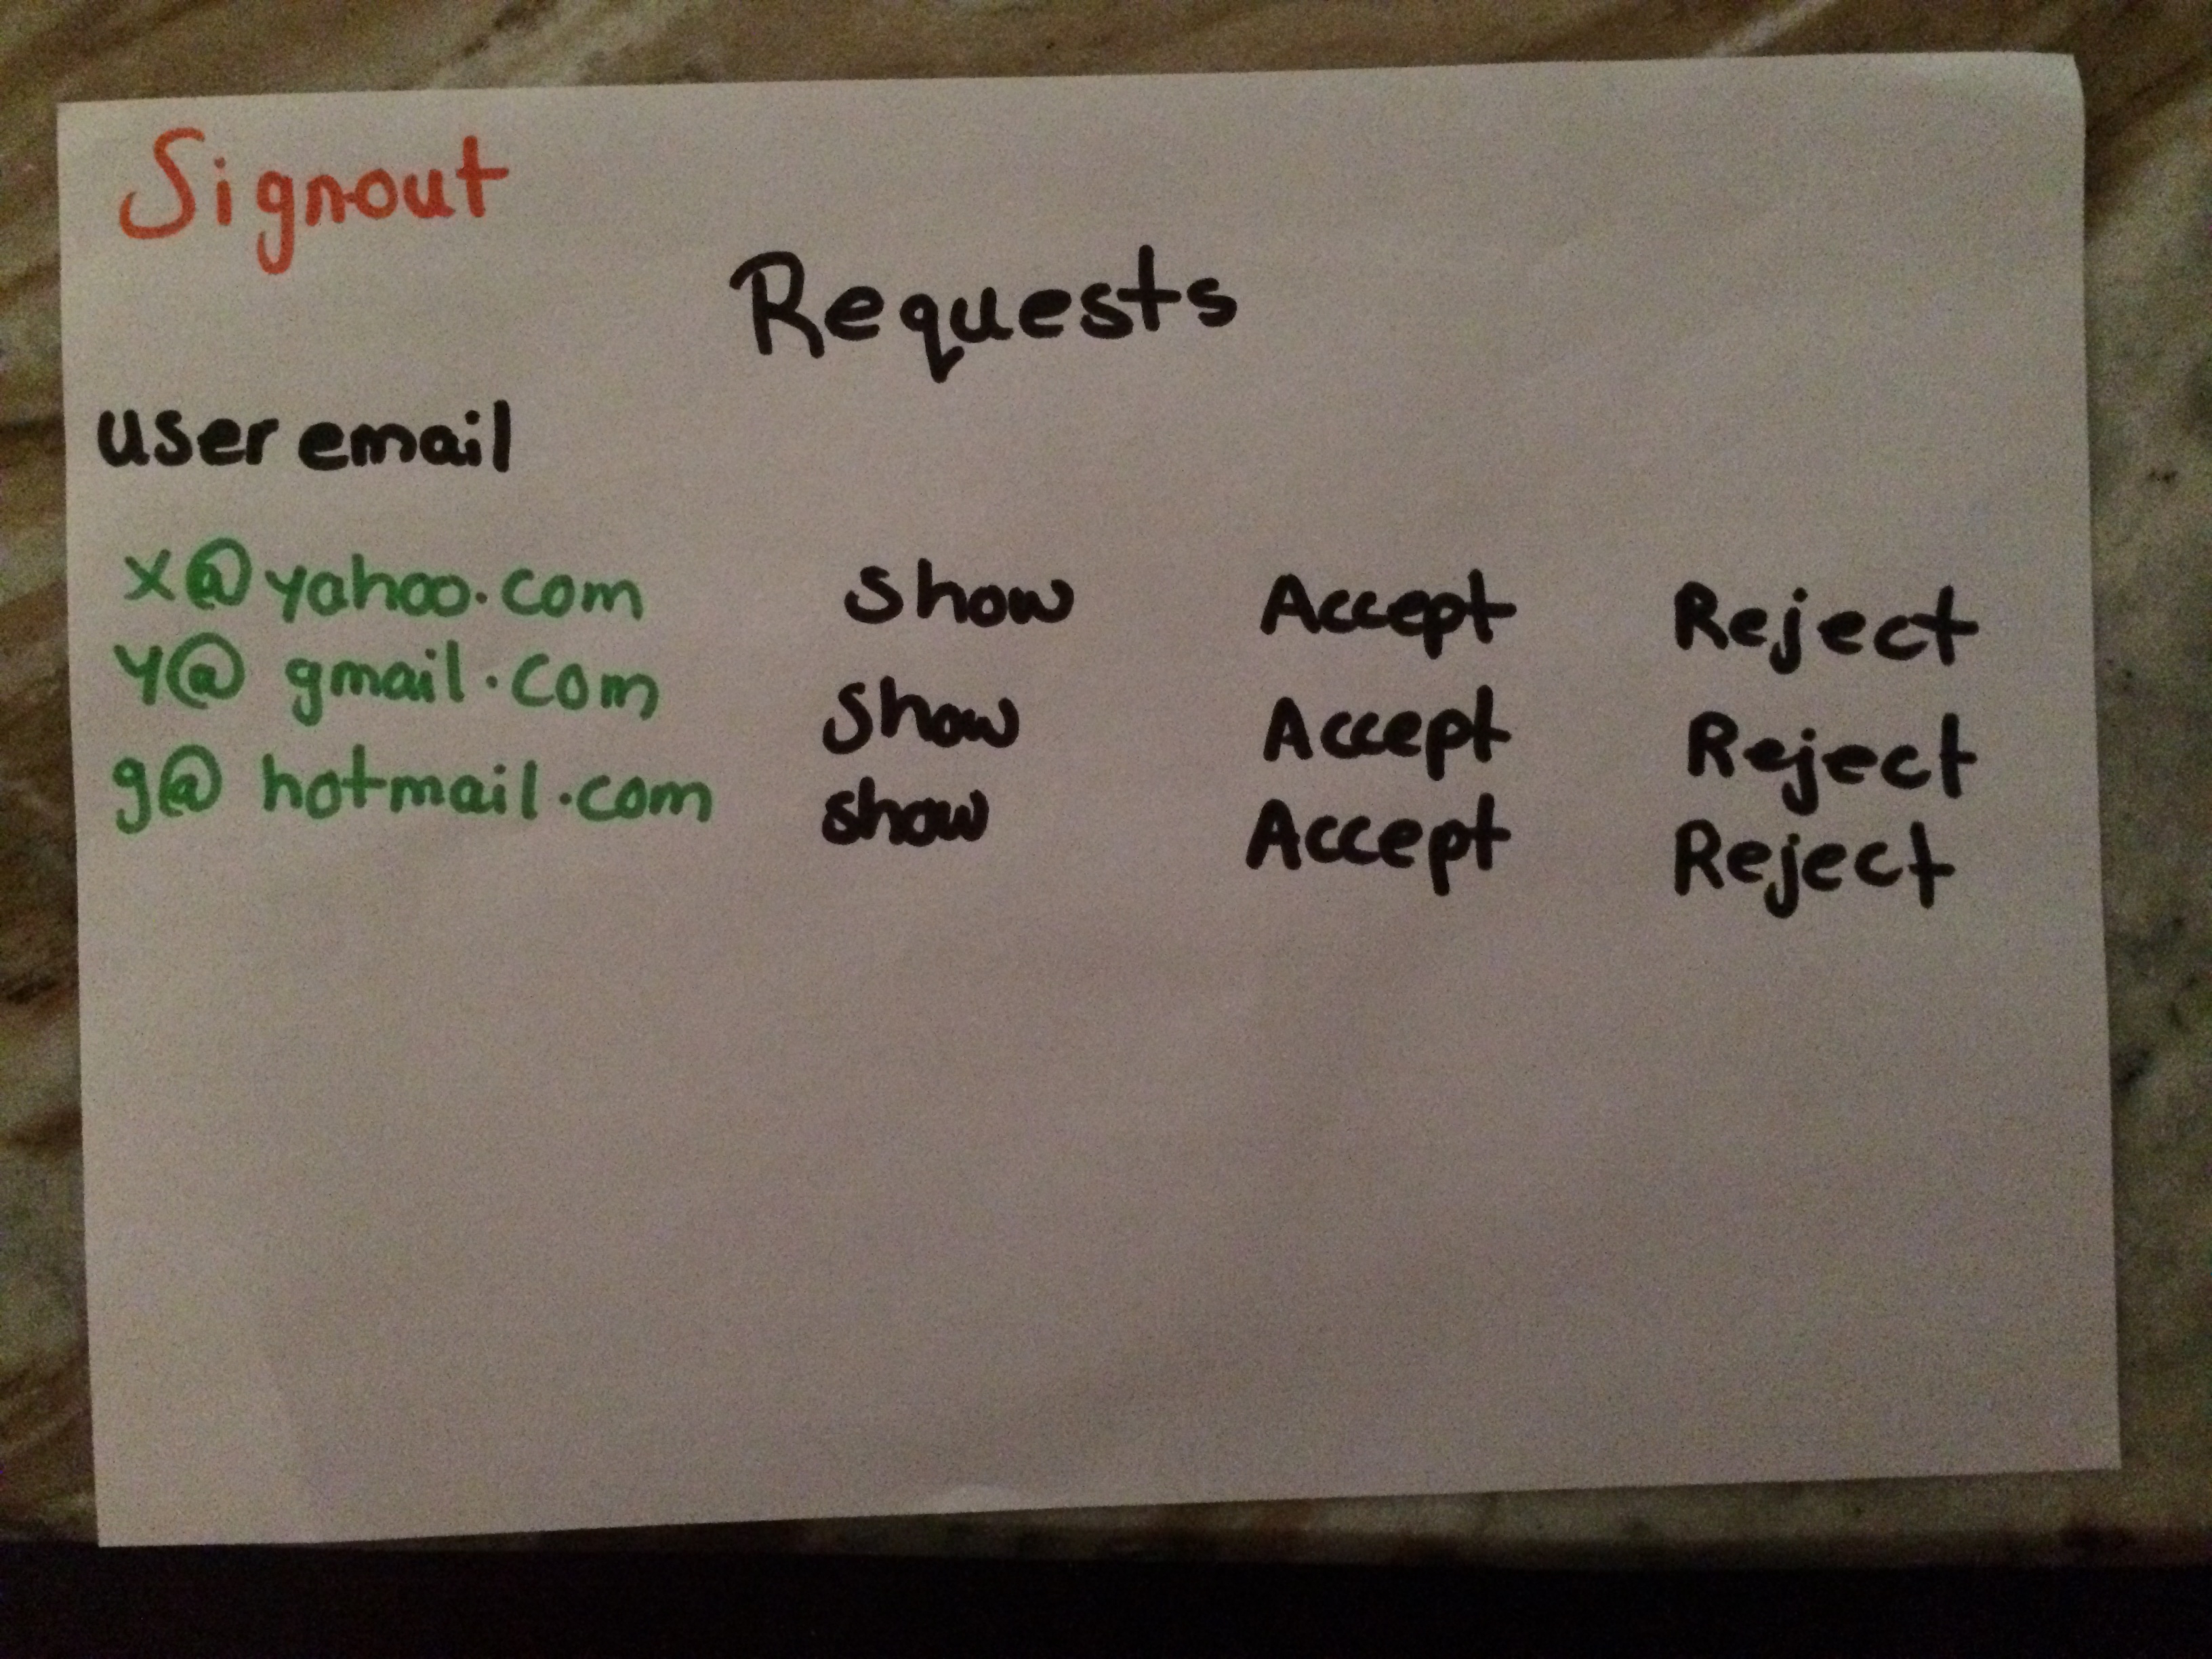 Signout
Requests
user email
x@yahoo.com Show Accept Reject
y@gmail.com Show Accept Reject
g@hotmail.com show Accept Reject